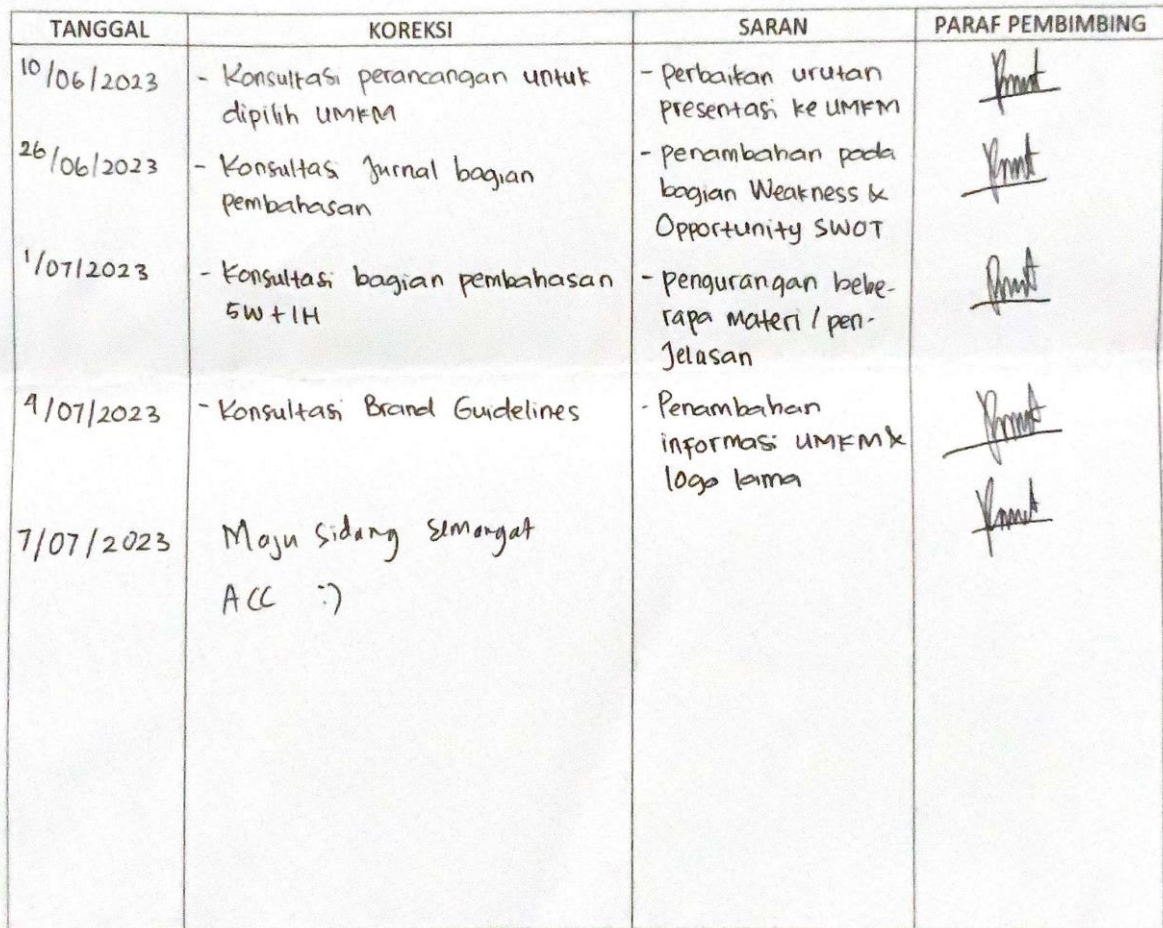 TANGGAL KOREKSI SARAN PARAF PEMBIMBING
10/06/2023 - Konsultasi perancangan untuk - perbaikan urutan
dipilih UMKM presentasi ke UMKM
26/06/2023 - Konsultasi Jurnal bagian - penambahan pada
pembahasan bagian Weakness &
Opportunity SWOT
1/07/2023 - Konsultasi bagian pembahasan - pengurangan bebe-
5W + 1H rapa materi / pen-
Jelasan
4/07/2023 - Konsultasi Brand Guidelines - Penambahan
informasi UMKM &
logo lama
7/07/2023 Maju Sidang Semangat
ACC :)